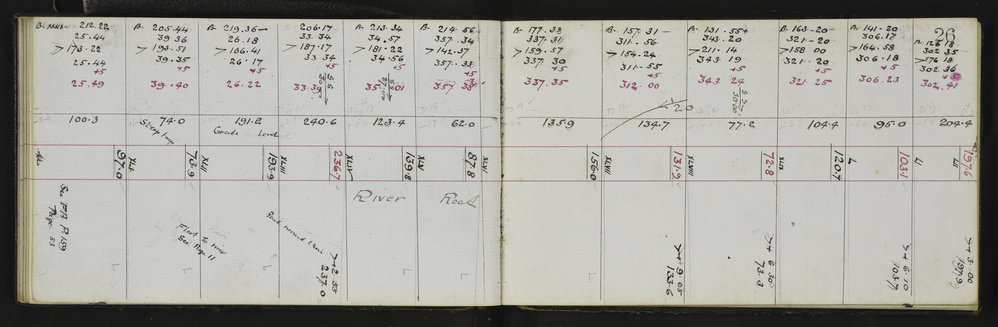 26
212.22
25.44
> 173.22
25.44
+5
25.49
A- 205.44
39.36
> 194.51
39.35
+5
39.40
A- 219.36
26.18
> 166.41
26.17
+5
26.22
206.17
33.34
> 187.17
33 34
+5
33.39
A- 213.34
34.57
> 181.22
34.56
+5
35.01
A- 214.56
357.34
> 142.37
357.33
+5
357 38
A- 177.33
337.31
> 159.57
337 30
+5
337.35
B- 157.31
311.56
> 154.24
311.55
+5
312.00
A- 131.55
343.20
> 211.14
343 19
+5
343 24
B- 163.20
321.20
> 158 00
321.20
+5
321.25
A- 141.20
306.17
> 164.58
306.18
+5
306.23
302.35
> 176 18
302.36
302.41
100.3
74.0
191.2
240.6
123.4
62.0
135.9
134.7
20
77.2
104.4
95.0
204.4
Steep
Grade Level
XL
97.0
XLI
73.9
XLII
193.9
XLIII
236.7
XLIV
139.8
XLV
87.8
XLVI
156.0
131.9
XLVIII
72.8
XLIX
120.7
L
103.1
LI
LII
197.6
See FB P 159
Page 53
Flat to river
See Page 11
River Road
>+2.55
237.0
>+9.05
133.6
>+6.30
73.3
>+6.10
103.7
>+3.00
197.9